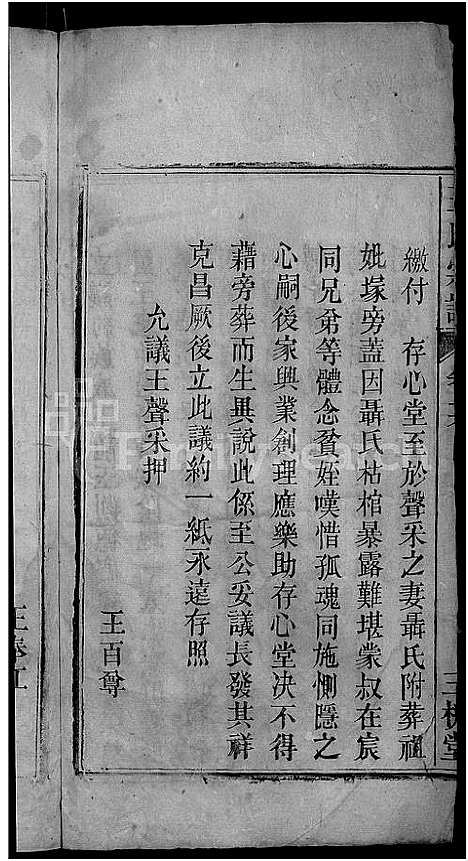 繳付　存心堂至於聲采之妻聶氏附葬祖
妣塚旁蓋因聶氏枯棺暴露難堪蒙叔在宸
同兄弟等體念貧姪嘆惜孤魂同施惻隱之
心嗣後家興業創理應樂助存心堂決不得
藉旁葬而生異說此係至公妥議長發其祥
克昌厥後立此議約一紙永遠存照
允議王聲采押
王百尊